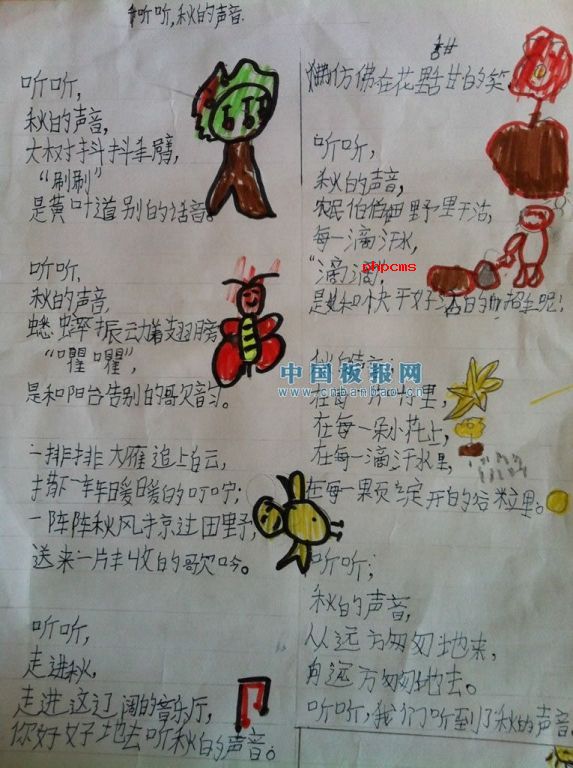 听听,秋的声音
听听,
秋的声音,
大树抖抖手臂,
“刷刷”
是黄叶道别的话音。
听听,
秋的声音,
蟋蟀振动翅膀,
“㘗㘗”,
是和阳台告别的歌韵。
一排排大雁追上白云,
撒下一阵暖暖的叮咛;
一阵阵秋风掠过田野,
送来一片丰收的歌吟。
听听,
走进秋,
走进这辽阔的音乐厅,
你好好地去听秋的声音。
甜
仿佛在花 甘的笑
听听,
秋的声音,
农民伯伯田野里干活,
每一滴汗水,
“滴滴”
phpcms
是 和快 好 的 呢!
秋的声音:
在每一片叶里,
在每一朵小花上,
在每一滴汗水里,
在每一颗绽开的谷粒里。
中国板报网
www.cnbanbao.cn
听听,
秋的声音,
从远方匆匆地来,
向远方匆匆地去。
听听,我们听到了秋的声音。